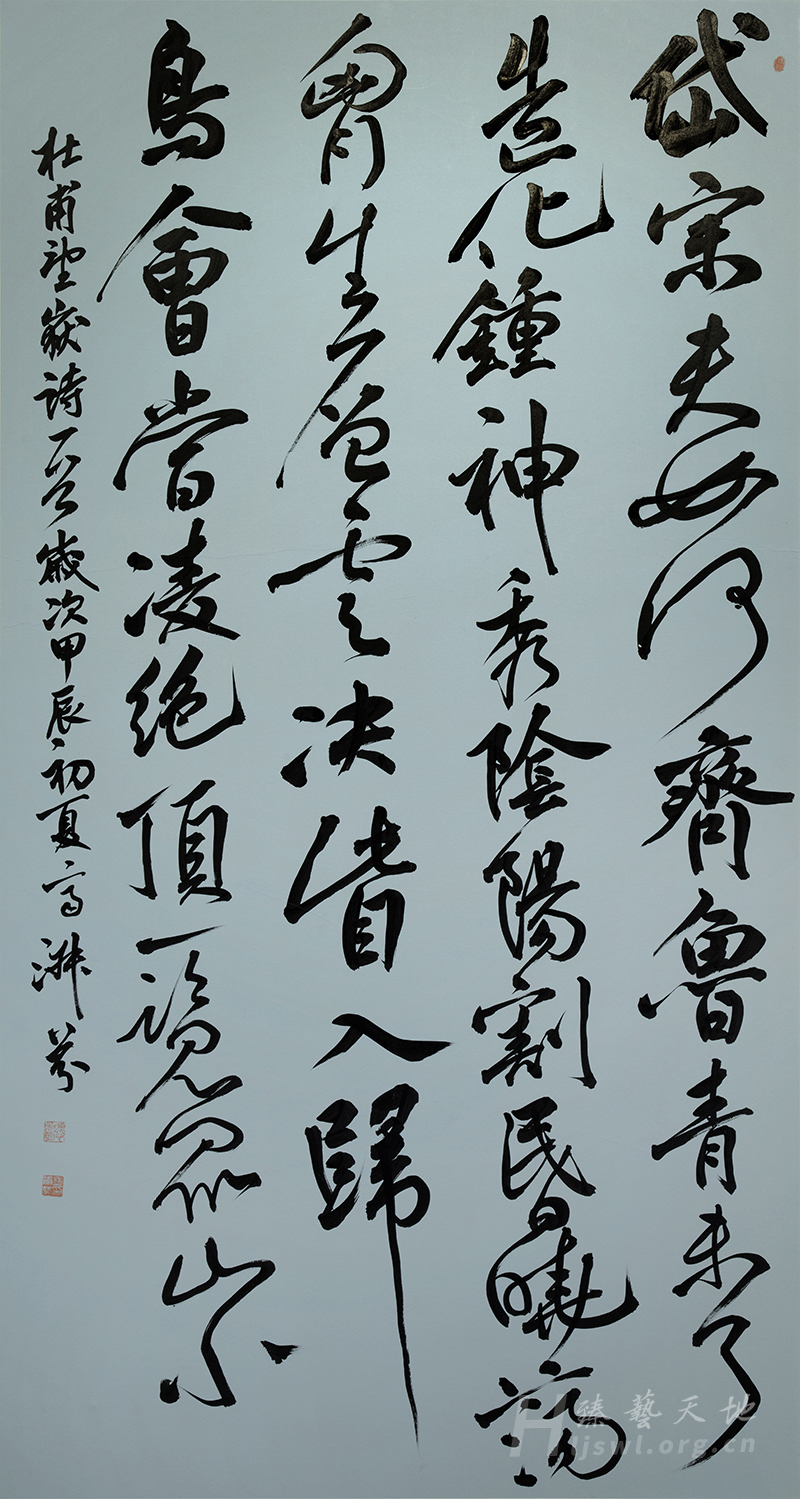 岱宗夫如何齊魯青未了
造化鍾神秀陰陽割昏曉蕩
胷生曾雲決眥入歸
鳥會當凌絕頂一覽眾山小
杜甫望嶽詩一首歲次甲辰初夏高淋芬
臻藝天地
jswl.org.cn